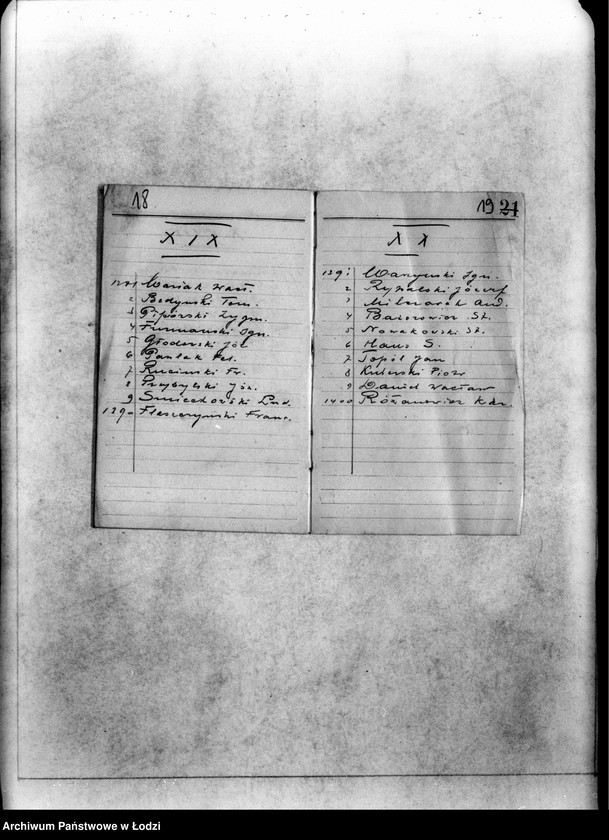 18
XIX
Wasiak Wacł.
2 Bedyński Tom.
3 Pipiórski Zygm.
4 Furmański Ign.
5 Głodowski Józ
6 Pawlak Fel.
7 Ruciński Fr.
8 Przybylski Józ.
9 Smiechowski Lud.
139- Fleszczyński Franc.
19 21
XX
139 1
2 Rybalski Józef
3 Milnarek And.
4 St.
5 Nowakowski St.
6 Haus S.
7 Topól Jan
8 Kulewski Piotr
9 Dawid Wacław
1400 Różanowicz
Archiwum Państwowe w Łodzi